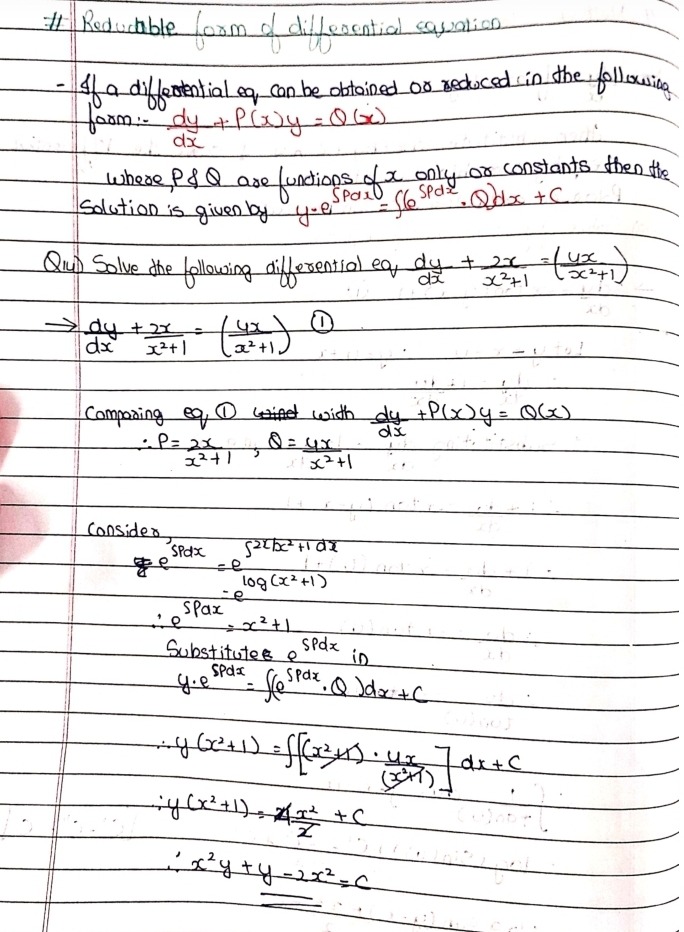 # Reducible form of differential equation
- If a differential eq, can be obtained or reduced in the following
form:- dy/dx + P(x)y = Q(x)
where, P & Q are functions of x only or constants then the
Solution is given by y·e^∫Pdx = ∫(e^∫Pdx . Q)dx + C
Q14) Solve the following differential eq, dy/dx + 2x/x²+1 = (4x/x²+1)
→ dy/dx + 2x/x²+1 = (4x/x²+1) ①
Comparing eq, ① with dy/dx + P(x)y = Q(x)
∴ P = 2x/x²+1 , Q = 4x/x²+1
Consider,
e^∫Pdx = e^∫2x/x²+1 dx
= e^log(x²+1)
∴ e^∫Pdx = x²+1
Substitute e^∫Pdx in
y·e^∫Pdx = ∫(e^∫Pdx . Q)dx + C
∴ y(x²+1) = ∫[(x²+1) · 4x/(x²+1)] dx + C
∴ y(x²+1) = 4x²/2 + C
∴ x²y + y - 2x² = C